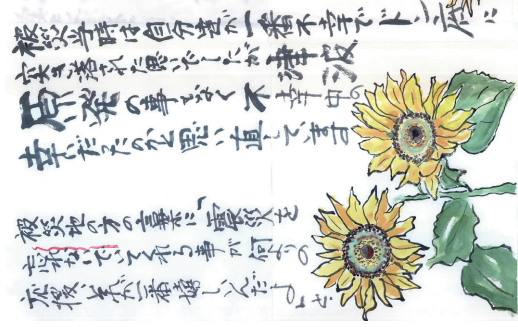 被災当時は自分達が一番不幸でドン底に
突き落された思いでしたが津波
原発の事でなく不幸中の
幸いだったのかと思い直しています
被災地の方の言葉に「震災を
忘れないでいてくれる事が何よりの
応援とそれが一番嬉しいんだよ」と…